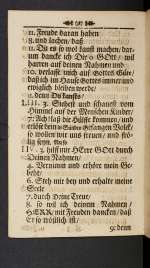 11. Freude daran haben
8. und suchen/ daß
11. Du es so wol kanst machen/ dar-
um dancke ich Dir ô GOtt/ wil
harren auf deinen Nahmen und
10. verlasse mich auf Gottes Güte/
daß ich im Hause Gottes immer und
ewiglich
11. denn Du kansts
LIII. 3. Siehest und schauest vom
Himmel auf der Menschen Kinder/
7. Ach! laß die Hülfe kommen/ und
erlöse dein Gefangen Volck/
so wollen wir uns freuen/ und frö-
lich seyn.
3. hilff mir HErr Gott durch
Deinen Nahmen/
4. Vernimm und erhöre mein Ge-
bethe/
6. Steh mir bey und erhalte meine
Seele
7. durch Deine Treue/
8. so wil ich deinem Nahmen/
HERR/ mit Freuden dancken/ daß
Er so tröstlich ist/
9: denn